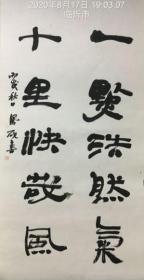 2020年8月17日 19:03:07
临沂市
一點浩然氣
十里快哉風